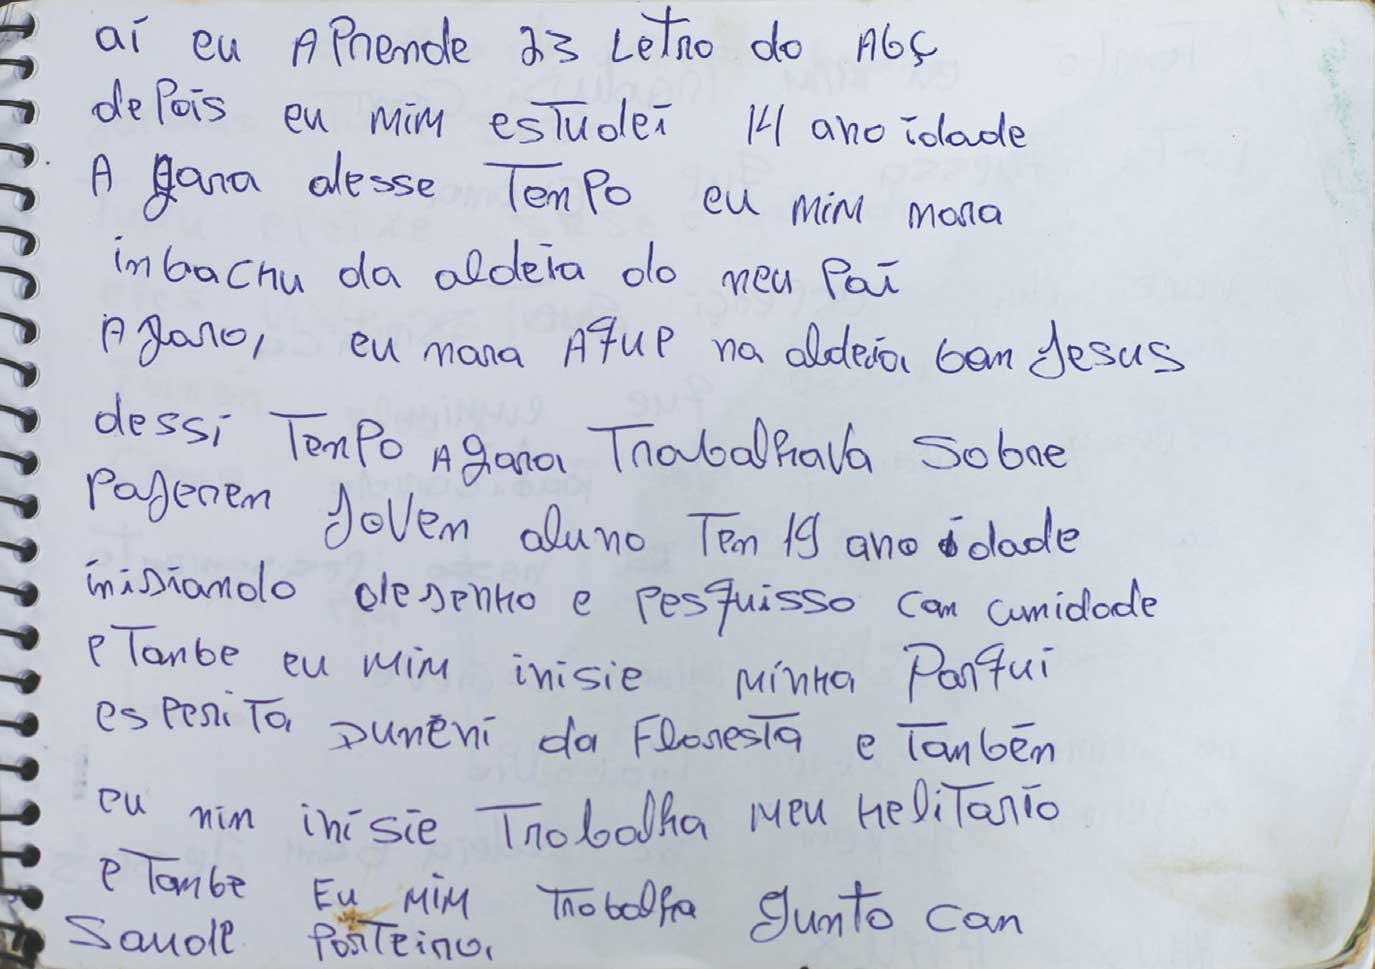 aí eu APrende 23 Letro do Abç
depois eu mim estudei 14 ano idade
A gara desse Tempo eu mim mora
inbachu da aldeia do meu Pai
Agaro, eu mora AquP na aldeia bom Jesus
dessi Tempo Agara Trabalhava sobre
Pagerem Jovem aluno Tem 19 ano idade
inisiando desenho e pesquisso com cumidade
e Tanbe eu mim inisie minha Porqui
esperita Dunēni da Floresta e Tanbēn
eu nim inisie Trobalha meu Helitario
e Tambe Eu mim Trobalha gunto can
Saude Parteira,